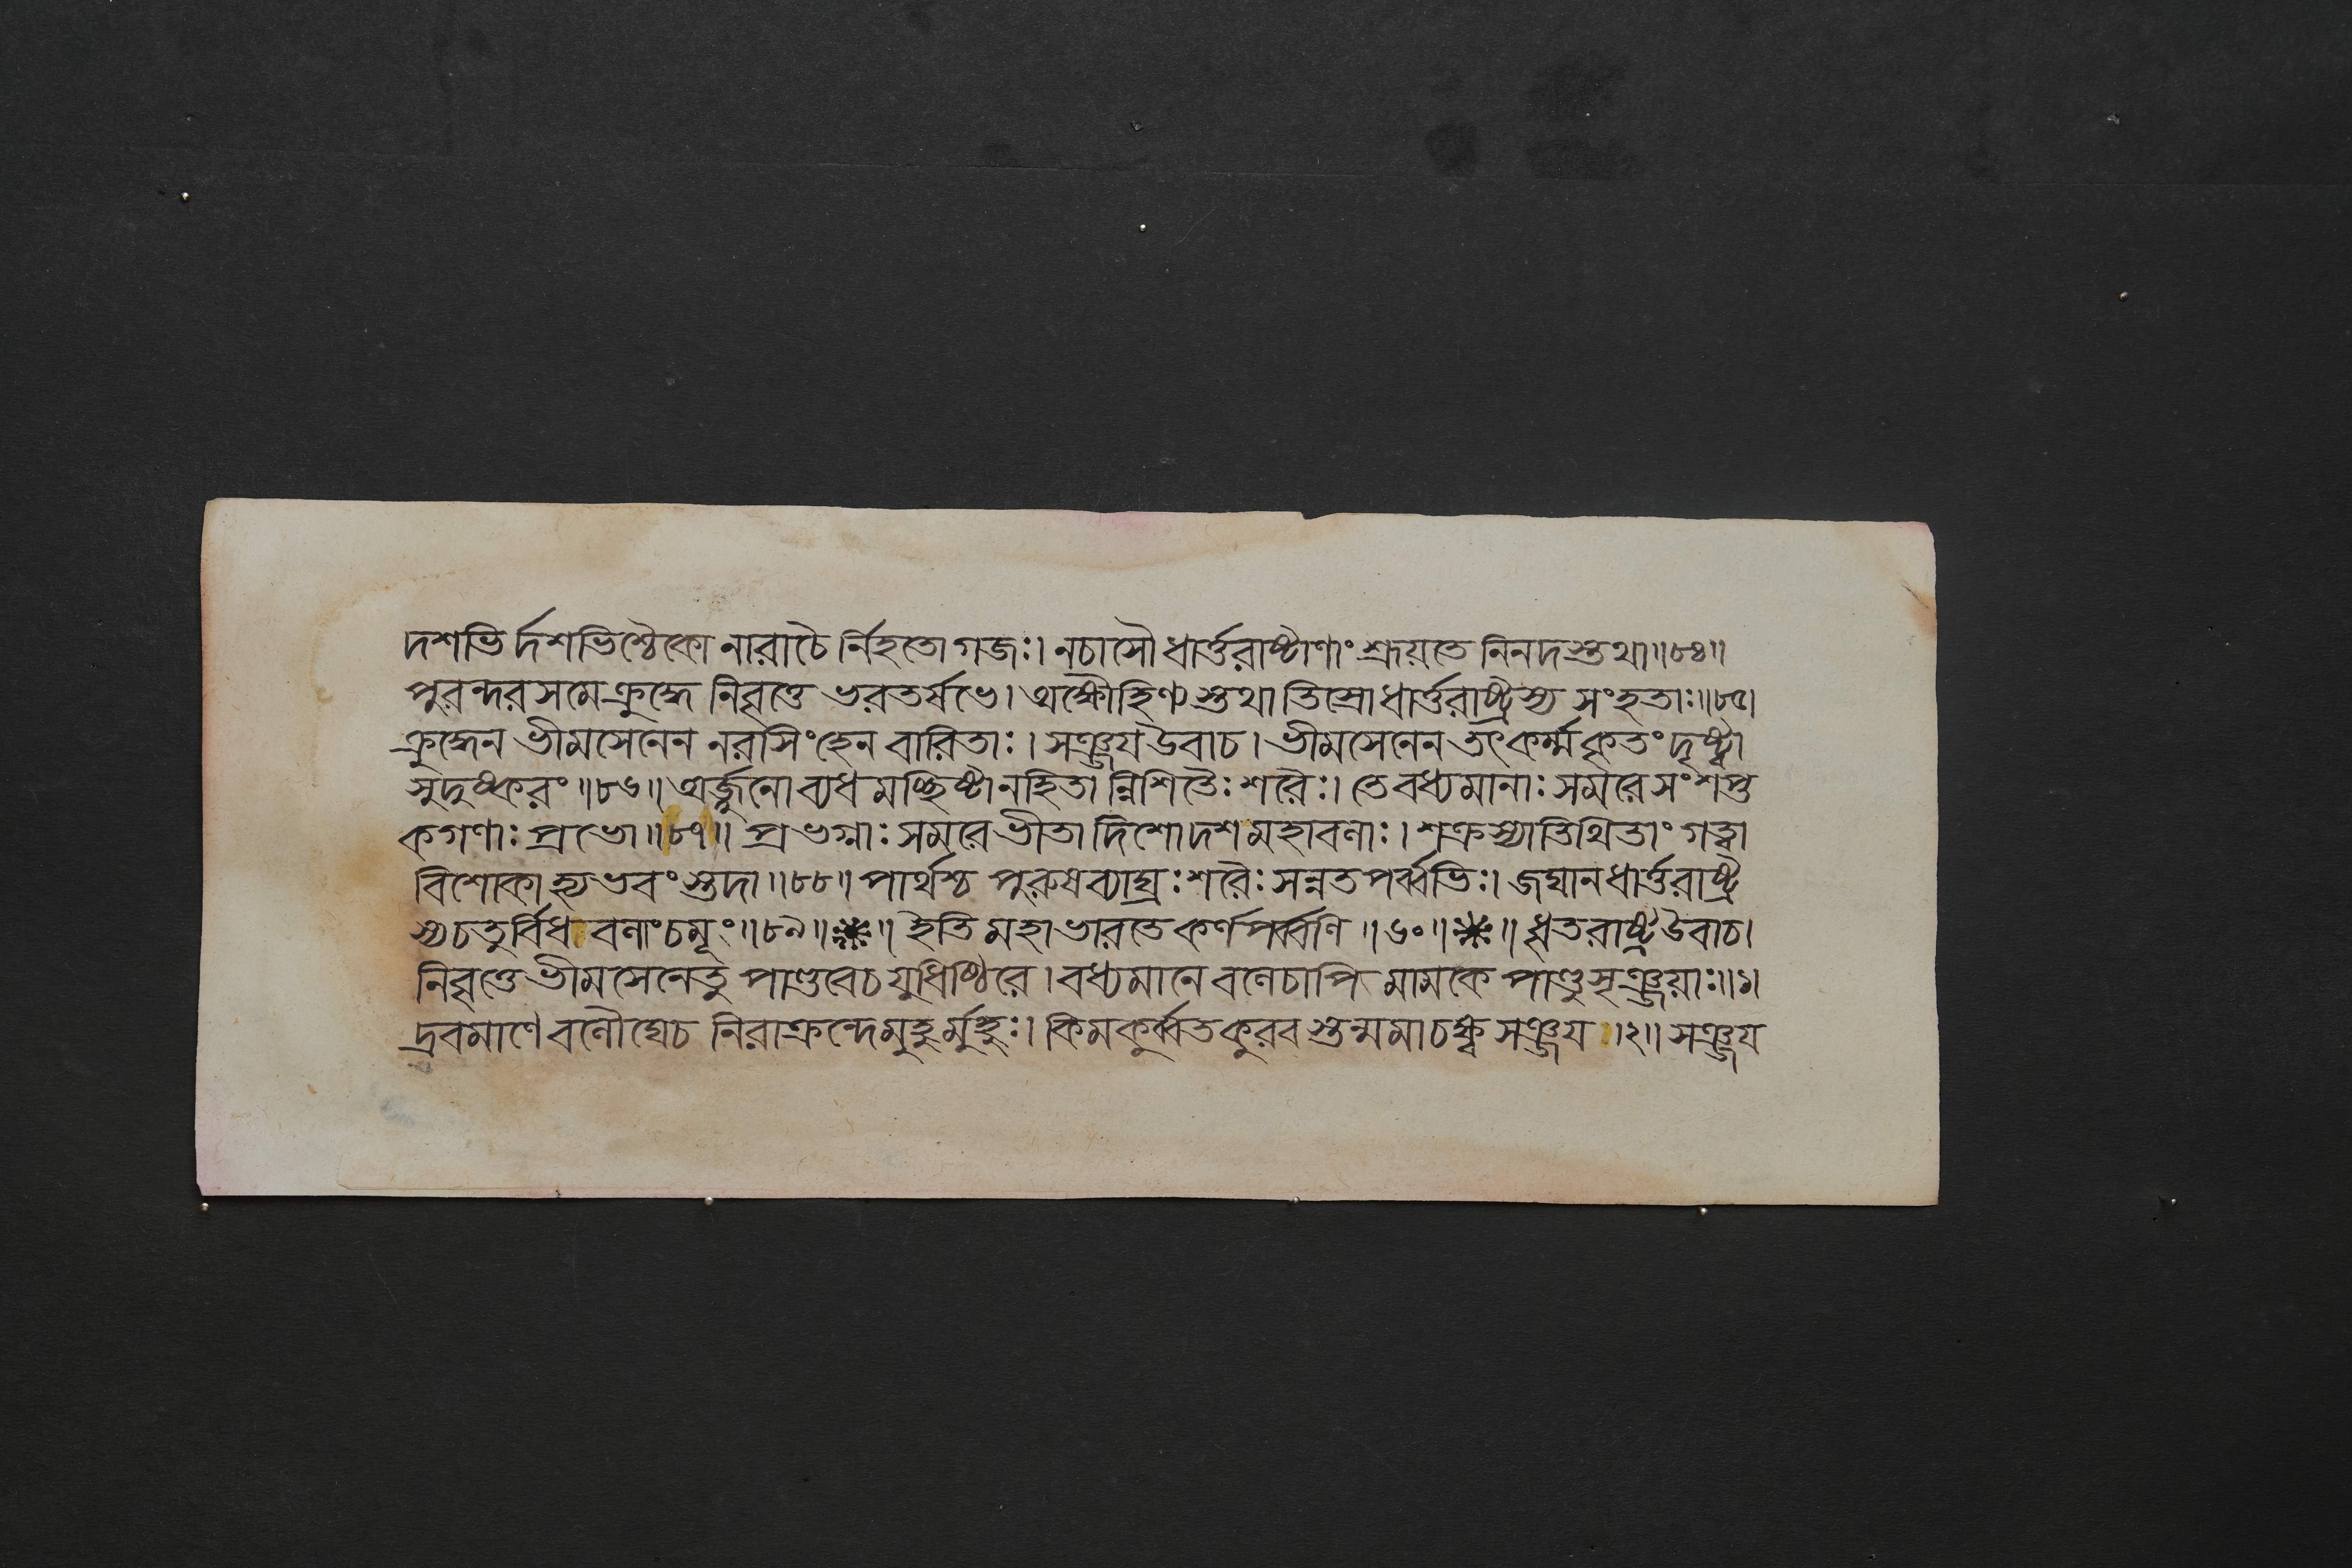 দশভির্দশভিশ্চৈকো নারাচৈর্নিহতো গজঃ। নচাসৌ ধার্ত্তরাষ্ট্রাণাং শ্রূয়তে নিনদস্তথা॥৮৪॥
পুরন্দরসমে ক্রুদ্ধে নিবৃত্তে ভরতর্ষভে। অক্ষৌহিণ্যস্তথা তিস্রো ধার্ত্তরাষ্ট্রস্য সংহতাঃ॥৮৫।
ক্রুদ্ধেন ভীমসেনেন নরসিংহেন বারিতাঃ। সঞ্জয উবাচ। ভীমসেনেন তৎকর্ম্ম কৃতং দৃষ্ট্বা
সুদুষ্করং॥৮৬॥ অর্জ্জুনো ব্যধমচ্ছিষ্টানহিতান্নিশিতৈঃ শরৈঃ। তে বধ্যমানাঃ সমরে সংশপ্ত
কগণাঃ প্রভো॥৮৭॥ প্রভগ্নাঃ সমরে ভীতা দিশো দশ মহাবলাঃ। শক্রস্যাতিথিতাং গত্বা
বিশোকা হ্যভবংস্তদা॥৮৮॥ পার্থশ্চ পুরুষব্যাঘ্রঃ শরৈঃ সন্নতপর্ব্বভিঃ। জঘান ধার্ত্তরাষ্ট্র
স্য চতুর্বিধবলাং চমূং॥৮৯॥ ॥ ইতি মহাভারতে কর্ণপর্ব্বণি॥৬০॥ ॥ ধৃতরাষ্ট্র উবাচ।
নিবৃত্তে ভীমসেনে তু পাণ্ডবে চ যুধিষ্ঠিরে। বধ্যমানে বলে চাপি মামকে পাণ্ডুসৃঞ্জয়াঃ॥১।
দ্রবমাণে বলৌঘে চ নিরাক্রন্দে মুহুর্মুহুঃ। কিমকুর্ব্বত কুরবস্তন্মমাচক্ষ্ব সঞ্জয॥২॥ সঞ্জয